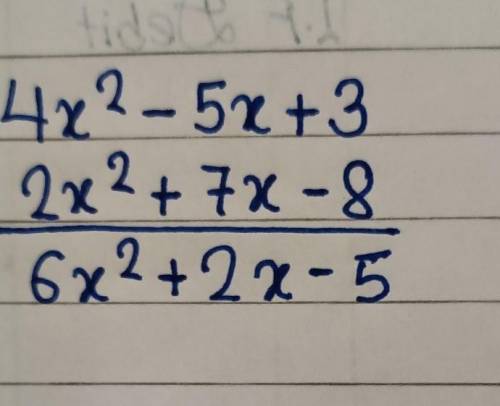 4x² - 5x + 3
2x² + 7x - 8
6x² + 2x - 5